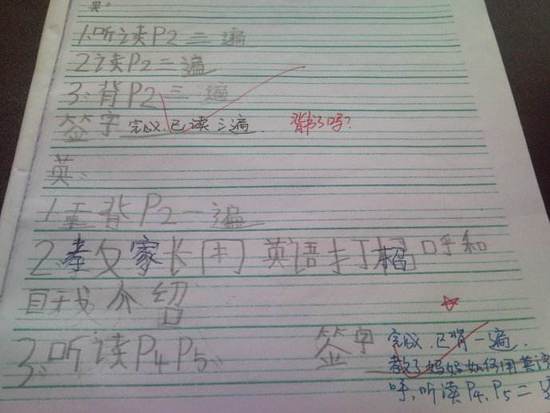 英:
1.听读P2二遍
2读P2二遍
3、背P2三遍
签字 完成,已读三遍. 背书了吗?
英:
1重背P2一遍
2教家长用英语打招呼和
自我介绍
3、听读P4 P5 签字 完成,已背一遍,
教了妈妈如何用英语
呼,听读P4、P5二